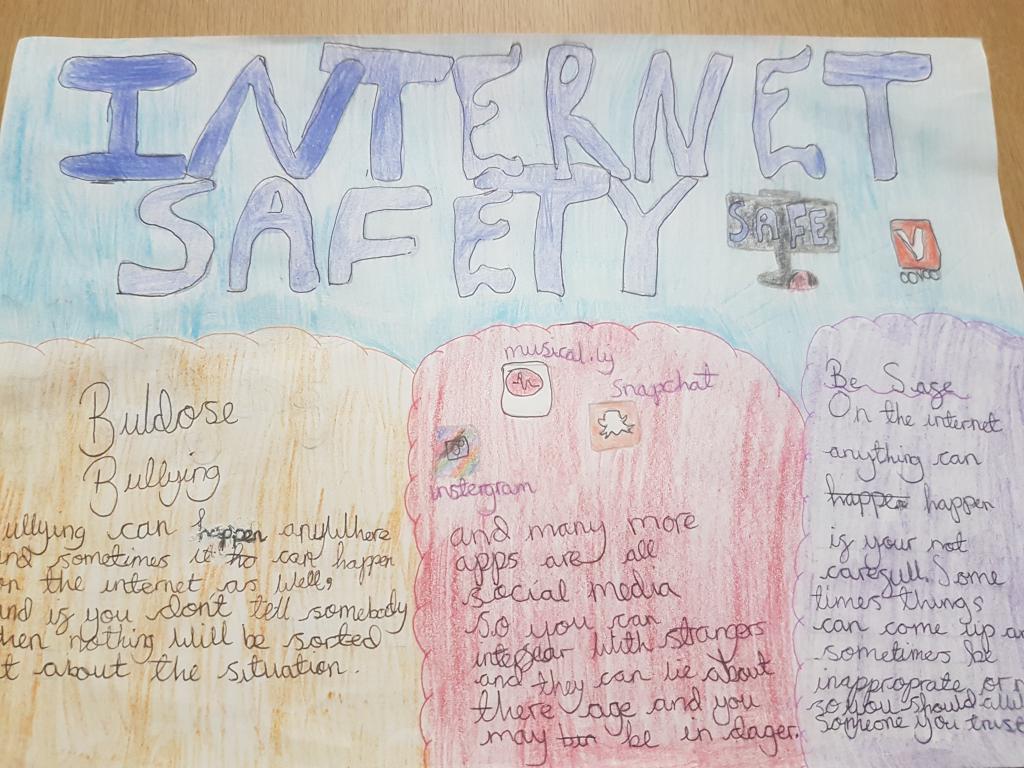 INTERNET
SAFETY
SAFE
V
Buldose
Bullying
ullying can happen anywhere
nd sometimes it can happen
n the internet as well,
nd if you dont tell somebody
hen nothing will be sorted
t about the situation.
musical.ly
snapchat
instergram
and many more
apps are all
social media
so you can
intefear with strangers
and they can lie about
there age and you
may be in dager.
Be Safe
On the internet
anything can
happen happen
if your not
carefull. Some
times things
can come up an
sometimes be
inapproprate or
so you should
someone you trust